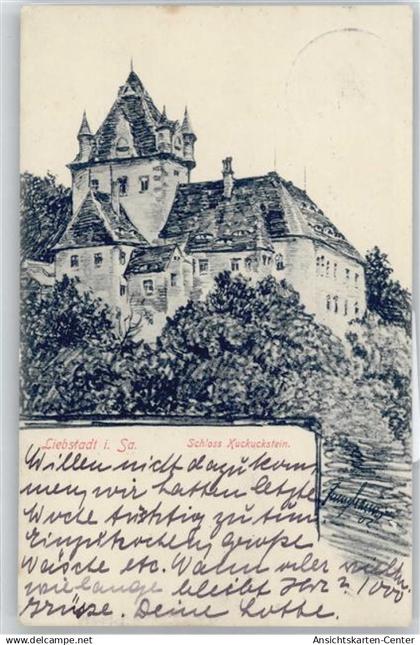 Liebstadt i. Sa. Schloss Kuckuckstein.
Willen nicht dazu kom-
men, wir hatten letzte
Woche tüchtig zu tun
Einzukochen, große
Wäsche etc. Wann oder
wie lange bleibt Ihr? 1000
Grüsse. Deine Lotte.
02
Ansichtskarten-Center